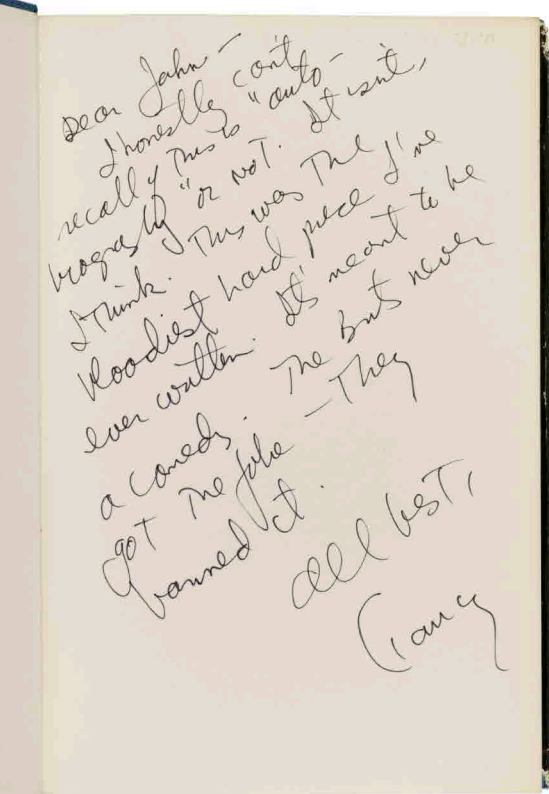 Dear John –
I honestly can't
recall if this is "auto–
biography" or not. It isn't,
I think. This was the
bloodiest hard piece I've
ever written. It's meant to be
a comedy. The Brits never
got the joke – They
banned it.
All best,
Clancy